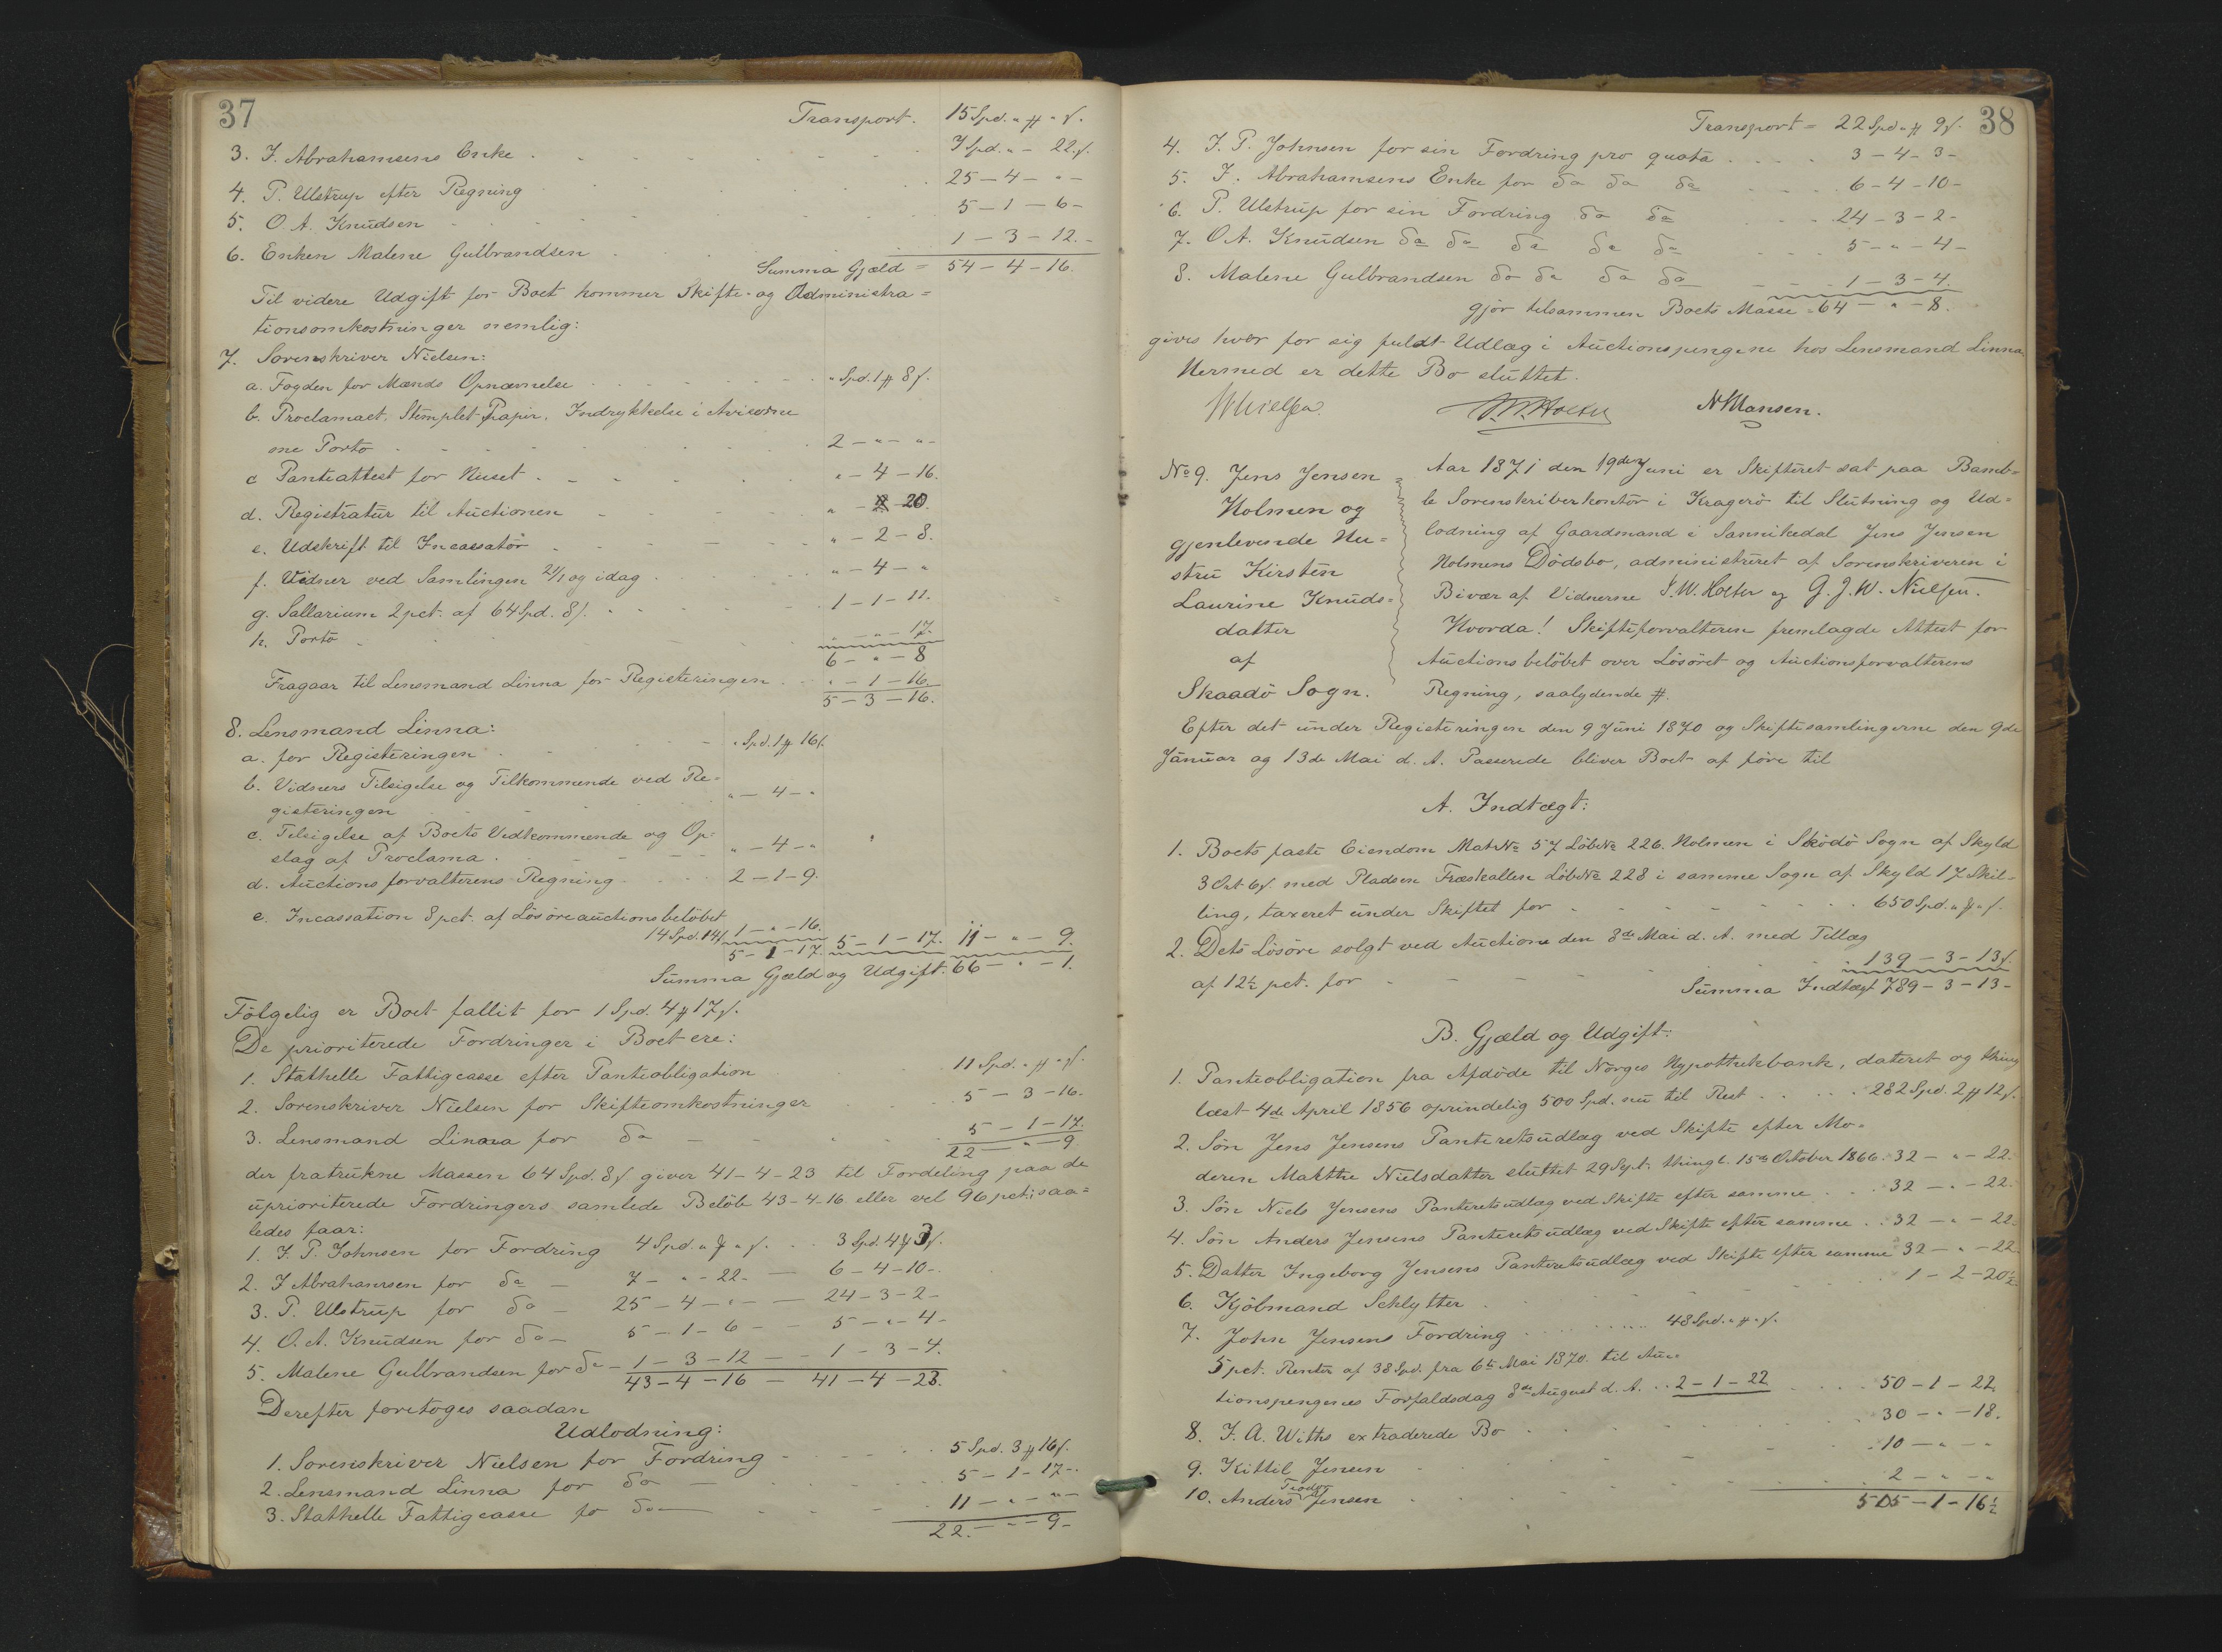 37
Transport. 15 Spd. " # " ſ.
3. J. Abrahamsens Enke . . . 7 Spd. " - 22 ſ.
4. P. Ulstrup efter Regning . . . 25 - 4 - " -
5. O. A. Knudsen . . . 5 - 1 - 6 -
6. Enken Malene Gulbrandsen . . . 1 - 3 - 12. -
Summa Gjæld = 54 - 4 - 16.
Til videre Udgift for Boet kommer Skifte- og Administra=
tionsomkostninger nemlig:
7. Sorenskriver Nielsen:
a. Fogden for Mænds Opnævnelse . . . " Spd. 1 # 8 ſ.
b. Proclamaet, Stemplet Papir, Indrykkelse i Aviserne
me Porto . . . 2 - " - " -
c Panteattest for Huset . . . " - 4 - 16.
d. Registratur til Auctionen . . . " - " - 20.
e. Udskrift til Incassator . . . " - 2 - 8.
f. Vidner ved Samlingen 21/1 og idag . . . " - 4 - "
g. Sallarium 2 pct. af 64 Spd. 8 ſ. . . . 1 - 1 - 11.
h. Porto . . . " - " - 17.
6 - " - 8
Fragaar til Lensmand Linna for Registeringen . . " - 1 - 16.
5 - 3 - 16.
8. Lensmand Linna:
a. for Registeringen . . . " Spd. 1 # 16 ſ.
b. Vidners Tilsigelse og Tilkommende ved Re=
gisteringen . . . " - 4 - "
c. Tilsigelse af Boets Vedkommende og Op=
slag af Proclama . . . " - 4 - "
d. Auctionsforvalterens Regning . . . 2 - 1 - 9.
e. Incassation 8 pct. af Lösöreauctionsbelöbet
14 Spd. 14 ſ. 1 - " - 16.
5 - 1 - 17. 5 - 1 - 17. 11 - " - 9.
Summa Gjæld og Udgift. 66 - " - 1.
Fölgelig er Boet fallit for 1 Spd. 4 # 17 ſ.
De prioriterede Fordringer i Boet ere:
1. Stathelle Fattigcasse efter Panteobligation 11 Spd. " # " ſ.
2. Sorenskriver Nielsen for Skifteomkostninger . . . 5 - 3 - 16.
3. Lensmand Linna for do - . . . 5 - 1 - 17.
22 - " - 9
der fratrukne Massen 64 Spd. 8 ſ giver 41 - 4 - 23 til Fordeling paa de
uprioriterede Fordringers samlede Belöb 43 - 4 - 16 eller vel 96 pct; saa=
ledes faar:
1. J. P. Johnsen for Fordring 4 Spd. " # " ſ. . . 3 Spd. 4 # 3 ſ.
2. J Abrahamsen for do - 7 - " - 22. - 6 - 4 - 10 -.
3. P. Ulstrup for do - 25 - 4 - " - 24 - 3 - 2 -
4. O. A. Knudsen for do - 5 - 1 - 6 - 5 - " - 4 -
5. Malene Gulbrandsen for do - 1 - 3 - 12 - 1 - 3 - 4.
43 - 4 - 16 - 41 - 4 - 23.
Derefter foretoges saadan
Udlodning:
1. Sorenskriver Nielsen for Fordring . . . 5 Spd. 3 # 16 ſ.
2. Lensmand Linna for do - . . . 5 - 1 - 17 -.
3. Stathelle Fattigcasse fo do - . . . 11 - " - " -
22. - " - 9 -
38
Transport = 22 Spd " # 9 ſ.
4. J. P. Johnsen for sin Fordring pro quota . . . 3 - 4 - 3 -
5. J. Abrahamsens Enke for do do do . . . 6 - 4 - 10 -
6. P. Ulstrup for sin Fordring do do . . . 24 - 3 - 2 -
7. O. A. Knudsen do do do do do . . . 5 - " - 4 -
8. Malene Gulbrandsen do do do do . . . 1 - 3 - 4.
gjør tilsammen Boets Masse = 64 - " - 8.
gives hver for sig fuldt Udlæg i Auctionspengene hos Lensmand Linna
Hermed er dette Bo sluttet.
WNielsen. S.W. Holter N Hansen.
No 9. Jens Jensen
Holmen og
gjenlevende Hu=
stru Kirsten
Laurine Knuds=
datter
af
Skaadö Sogn.
Aar 1871 den 19de Juni er Skifteret sat paa Bamb=
le Sorenskriverkontor i Kragerö til Slutning og Ud=
lodning af Gaardmand i Sannikedal Jens Jensen
Holmens Dödsbo, administreret af Sorenskriveren i
Bivær af Vidnerne S. W. Holter og G. J. W. Nielsen.
Hvorda! Skifteforvalteren fremlagde Attest for
Auctionsbelöbet over Lösöret og Auctionsforvalterens
Regning, saalydende #.
Efter det under Registeringen den 9 Juni 1870 og Skiftesamlingerne den 9de
Januar og 13de Mai d. A. Passerede bliver Boet at före til
A. Indtægt:
1. Boets faste Eiendom Mat No 57 Löb No 226. Holmen i Sködö Sogn af Skyld
3 Ort 6 ſ. med Pladsen Træskallen Löb No 228 i samme Sogn af Skyld 17 Skil=
ling, taxeret under Skiftet for . . . 650 Spd. " # " ſ.
2. Dets Lösöre solgt ved Auction den 8de Mai d. A. med Tillæg
af 12½ pct. for . . . 139 - 3 - 13 ſ.
Summa Indtægt 789 - 3 - 13 -
B. Gjæld og Udgift:
1. Panteobligation fra Afdöde til Norges Hypothekbank, dateret og thing
læst 4de April 1856 oprindelig 500 Spd. nu til Rest . . . 282 Spd. 2 # 12 ſ.
2. Sön Jens Jensens Panteretsudlæg ved Skifte efter Mo=
deren Makthe Nielsdatter sluttet 29 Sept. thingl. 15de October 1866. 32 - " - 22.
3. Sön Niels Jensens Panteretsudlæg ved Skifte efter samme . . . 32 - " - 22.
4. Sön Anders Jensens Panteretsudlæg ved Skifte efter samme . . 32 - " - 22.
5. Datter Ingeborg Jensens Panteretsudlæg ved Skifte efter samme 32 - " - 22.
6. Kjöbmand Schlytter . . . 1 - 2 - 20½
7. John Jensens Fordring . . . 48 Spd. " # " ſ.
5 pct. Renter af 38 Spd. fra 6te Mai 1870. til Auc=
tionspengenes Forfaldsdag 8de August d. A. . . 2 - 1 - 22 . . . 50 - 1 - 22.
8. J. A. Withs extraderede Bo . . . 30 - " - 18.
9. Kittil Jensen . . . 10 - " - "
10. Anders Jensen . . . 2 - " - "
505 - 1 - 16½